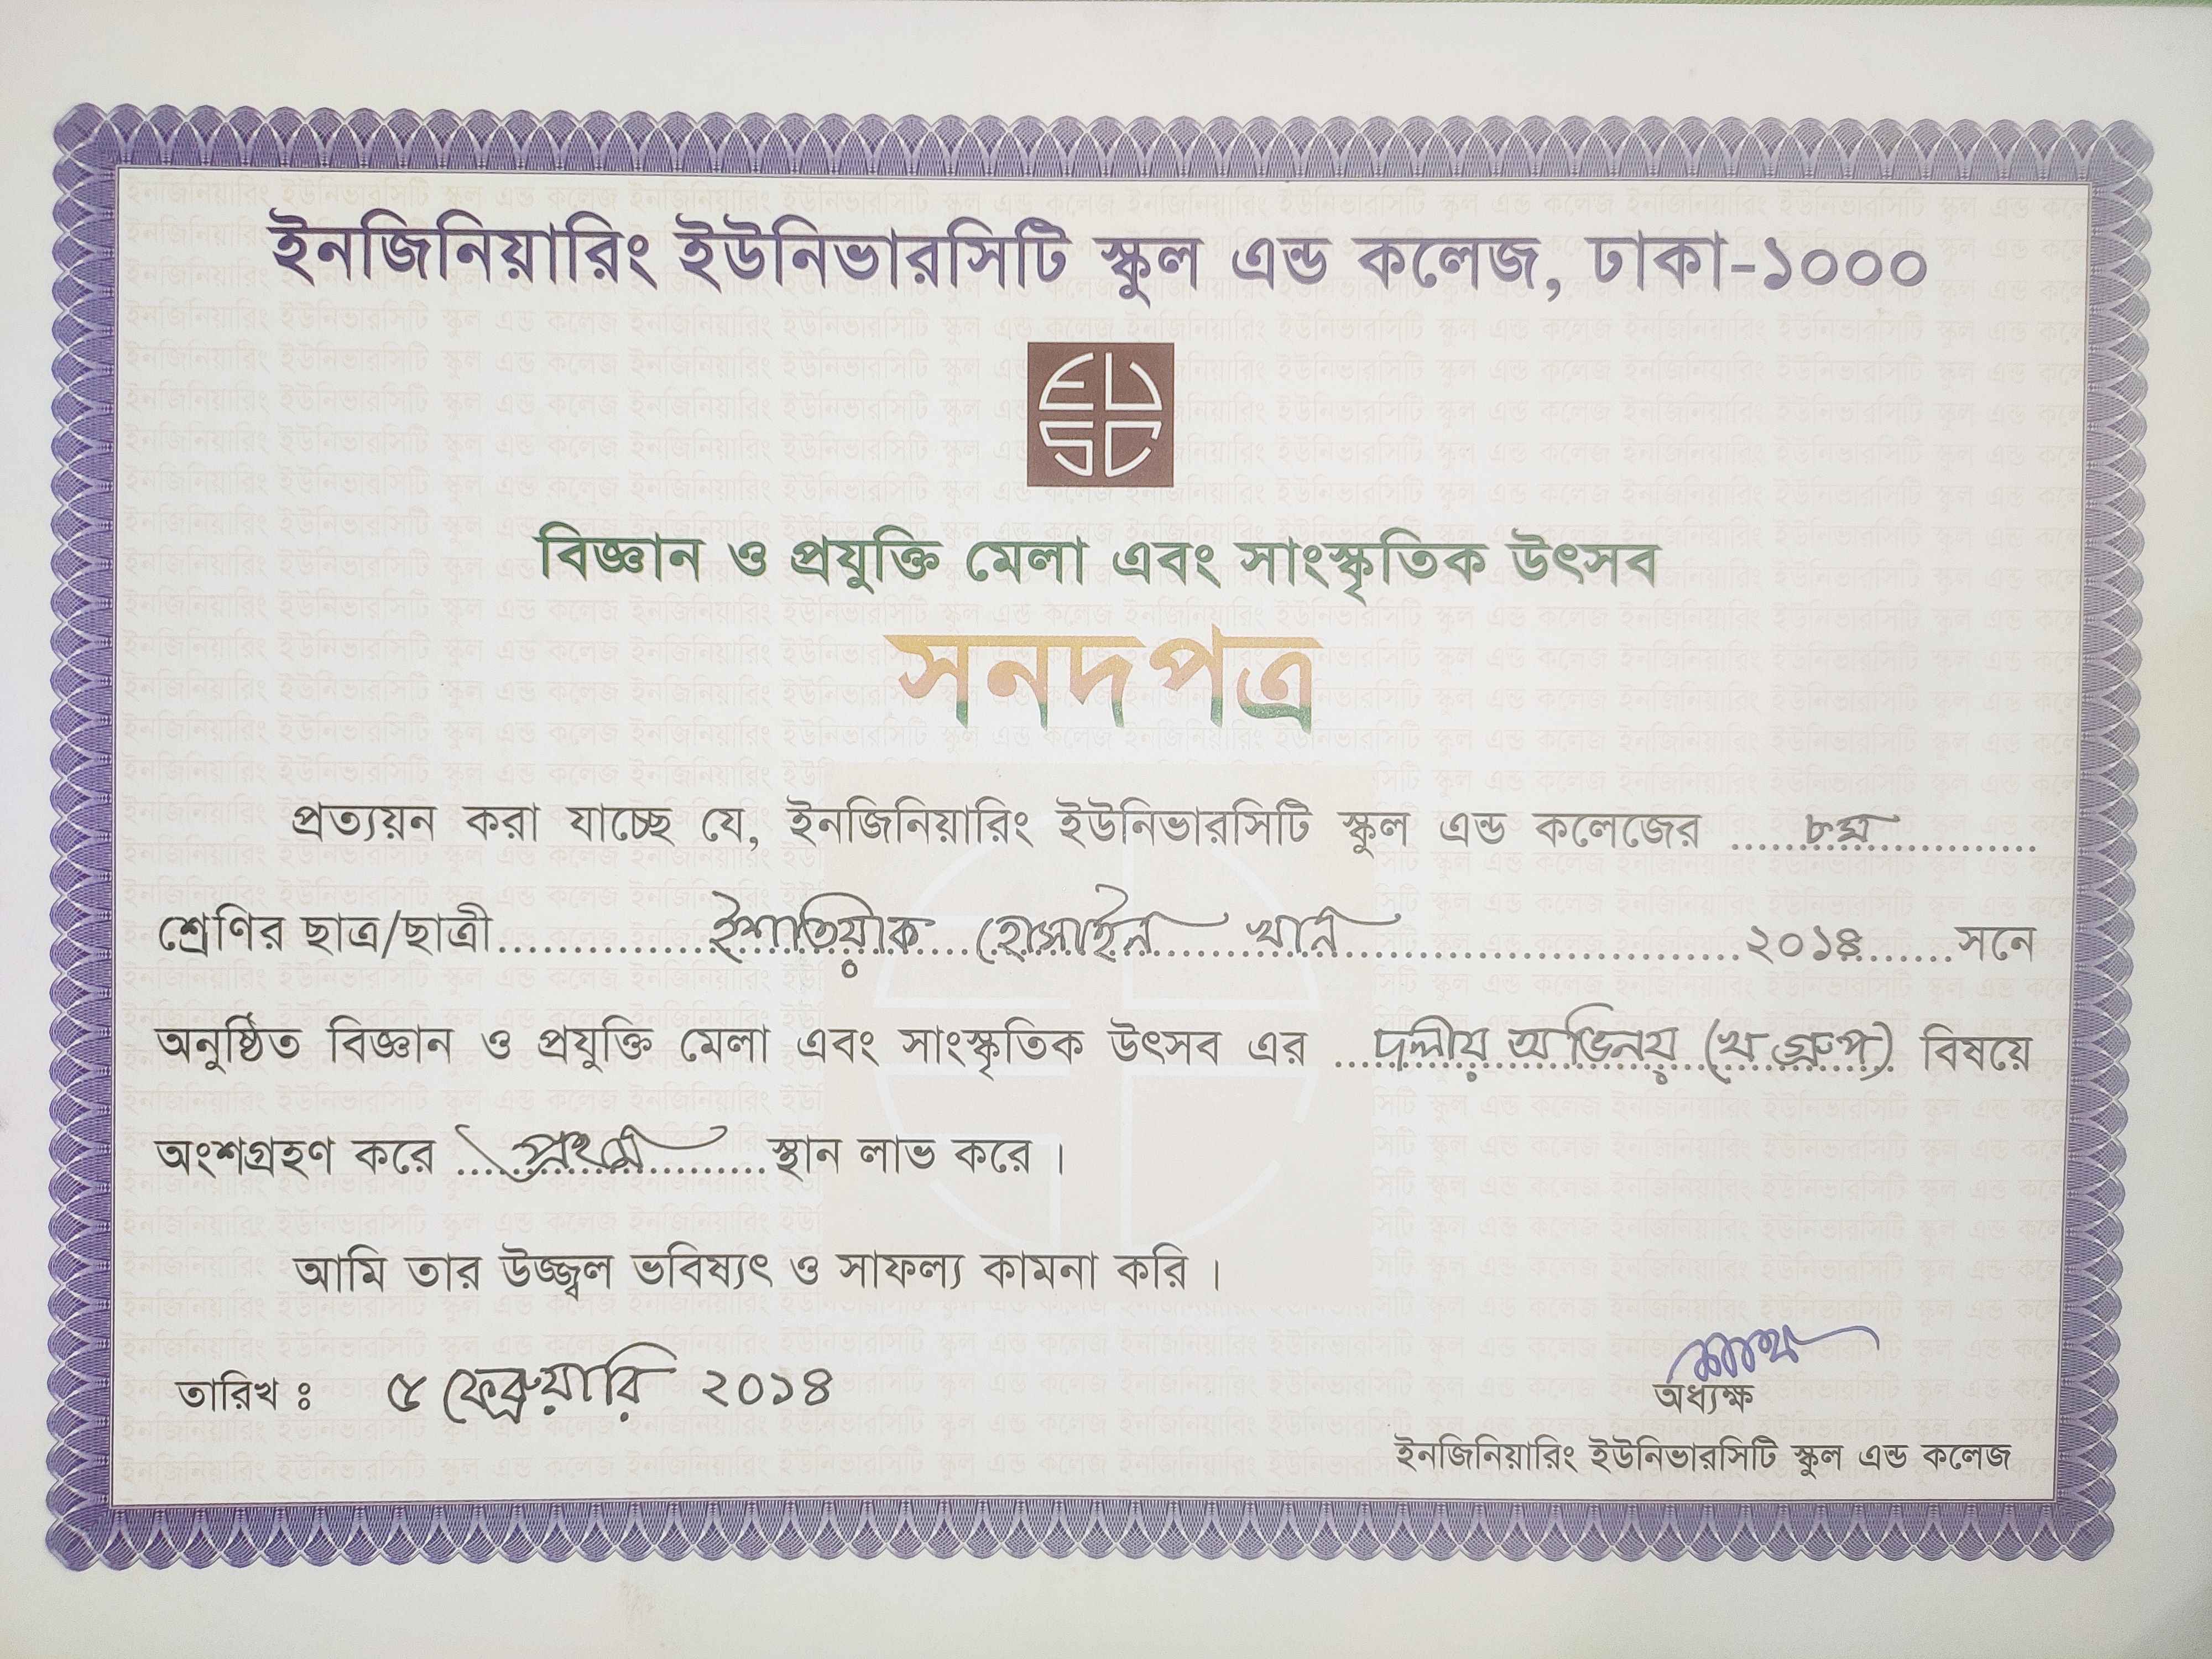 ইনজিনিয়ারিং ইউনিভারসিটি স্কুল এন্ড কলেজ, ঢাকা-১০০০
EUSC
বিজ্ঞান ও প্রযুক্তি মেলা এবং সাংস্কৃতিক উৎসব
সনদপত্র
প্রত্যয়ন করা যাচ্ছে যে, ইনজিনিয়ারিং ইউনিভারসিটি স্কুল এন্ড কলেজের ....৮ম....
শ্রেণির ছাত্র/ছাত্রী....ইশতিয়াক হোসাইন খান....২০১৪....সনে
অনুষ্ঠিত বিজ্ঞান ও প্রযুক্তি মেলা এবং সাংস্কৃতিক উৎসব এর ...দলীয় অভিনয় (খ গ্রুপ) বিষয়ে
অংশগ্রহণ করে ....প্রথম....স্থান লাভ করে।
আমি তার উজ্জ্বল ভবিষ্যৎ ও সাফল্য কামনা করি।
তারিখ ঃ ৫ ফেব্রুয়ারি ২০১৪
অধ্যক্ষ
ইনজিনিয়ারিং ইউনিভারসিটি স্কুল এন্ড কলেজ